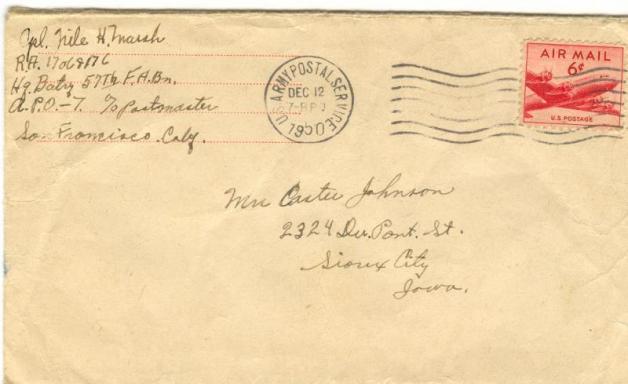 Cpl. Nile H. Marsh
R.A. 17068176
Hq. Batry 57Th F.A.Bn.
A.P.O.-7. c/o Postmaster
San Francisco. Calif.
U.S. ARMY POSTAL SERVICE
DEC 12
1950
AIR MAIL
6¢
U.S. POSTAGE
Johnson
2324 St.
Sioux City
Iowa.